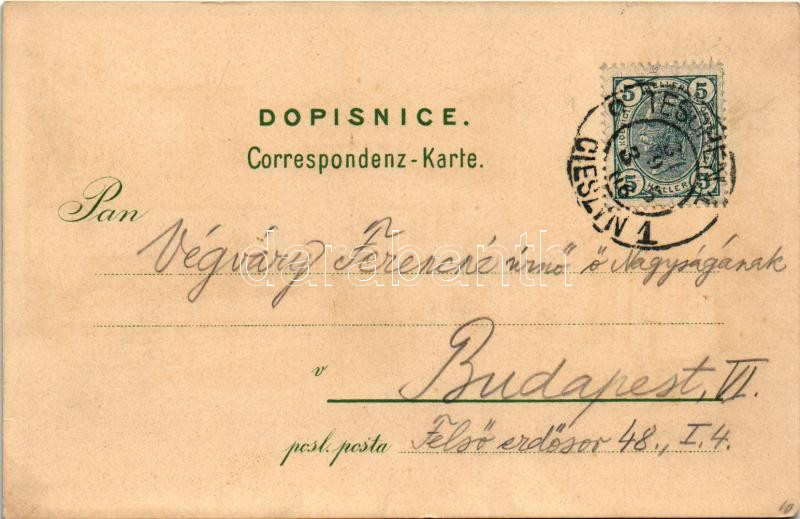 DOPISNICE.
Correspondenz-Karte.
5 HELLER 5
5 HELLER 5
TESCHEN
CIESZYN
Pan
Végváry Ferencné úrnő ő Nagyságának
darabanth
v Budapest, VI.
posl. pošta Felső erdősor 48., I. 4.
10